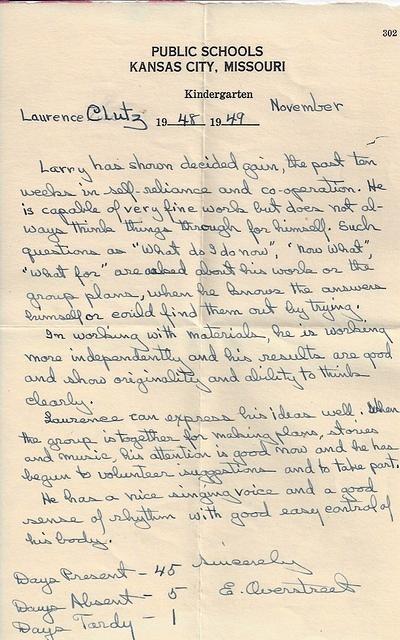 302
PUBLIC SCHOOLS
KANSAS CITY, MISSOURI
Kindergarten
Laurence Clutz 1948 1949 November
Larry has shown decided gain, the past ten
weeks in self-reliance and co-operation. He
is capable of very fine work but does not al-
ways think things through for himself. Such
questions as "What do I do now", "Now what",
"What for" are asked about his work or the
group plans, when he knows the answers
himself or could find them out by trying.
In working with materials, he is working
more independently and his results are good
and show originality and ability to think
clearly.
Laurence can express his ideas well. When
the group is together for making plans, stories
and music, his attention is good now and he has
begun to volunteer suggestions and to take part.
He has a nice singing voice and a good
sense of rhythm with good easy control of
his body.
Sincerely
E. Overstreet
Days Present - 45
Days Absent - 5
Days Tardy - 1